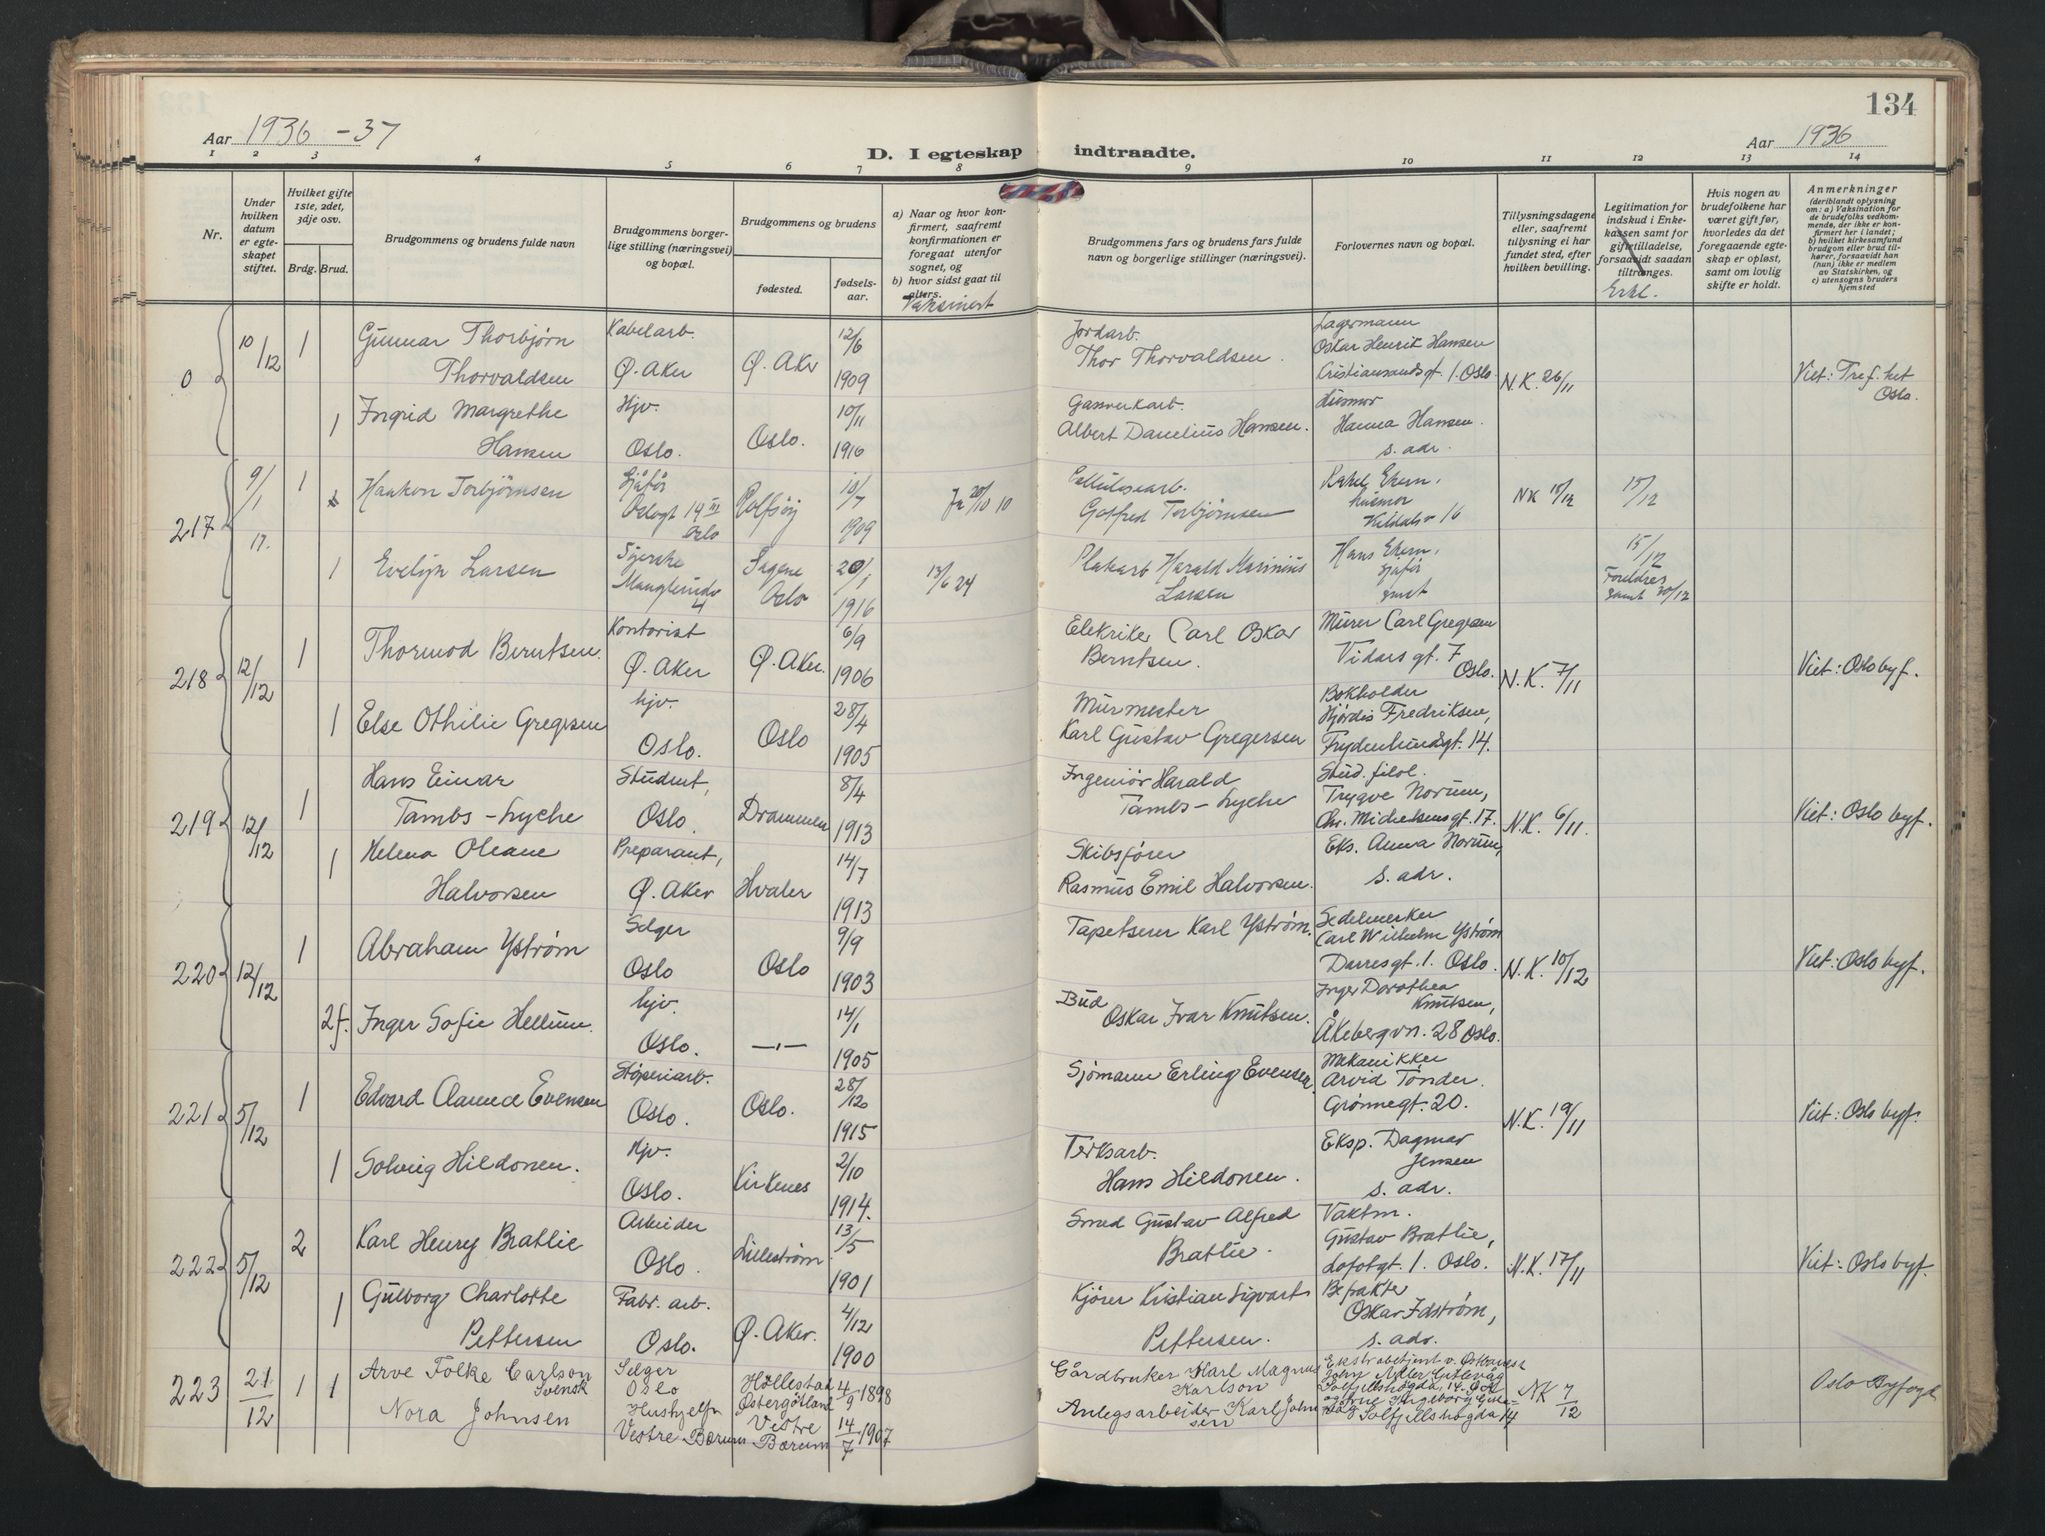 134
Aar 1936 - 37
D. I egteskap indtraadte.
Aar 1936
1 2 3 4 5 6 7 8 9 10 11 12 13 14
Nr.
Under hvilken datum er egteskapet stiftet.
Hvilket gifte 1ste, 2det, 3dje osv.
Brdg. Brud.
Brudgommens og brudens fulde navn
Brudgommens borgerlige stilling (næringsvei) og bopæl.
Brudgommens og brudens
fødested.
fødselsaar.
a) Naar og hvor konfirmert, saafremt konfirmationen er foregaat utenfor sognet, og
b) hvor sidst gaat til alters.
Vaksinert
Brudgommens fars og brudens fars fulde navn og borgerlige stillinger (næringsvei).
Forlovernes navn og bopæl.
Tillysningsdagene eller, saafremt tillysning ei har fundet sted, efter hvilken bevilling.
Legitimation for indskud i Enkekassen samt for giftetilladelse, forsaavidt saadan tiltrænges.
Erkl.
Hvis nogen av brudefolkene har været gift før, hvorledes da det foregaaende egteskap er opløst, samt om lovlig skifte er holdt.
Anmerkninger
(deriblandt oplysning om: a) Vaksination for de brudefolks vedkommende, der ikke er konfirmert her i landet; b) hvilket kirkesamfund brudgom eller brud tilhører, forsaavidt han (hun) ikke er medlem av Statskirken, og c) utensogns bruders hjemsted
0 10/12 1 Gunnar Thorbjørn Thorvaldsen Kabelarb. Ø. Aker Ø. Aker 12/6 1909 Jordarb. Thor Thorvaldsen. Lagermann Oskar Henrik Hansen Cristiansandsgt. 1. Oslo. N.K. 26/11 Viet: Tref.het Oslo.
1 Ingrid Margrethe Hansen Hjv. Oslo. Oslo. 10/11 1916 Gassverkarb. Albert Danelius Hansen. Husmor Hanna Hansen. s. adr.
217 9/1 1 Haakon Torbjørnsen Sjåfør Oslogt 19 III Oslo Rolfsøy 10/7 1909 20/10 10 Cellulosearb. Gotfred Torbjørnsen Rakel Ekern, husmor 16 NK 10/12 15/12
17. 1 Evelyn Larsen Syerske Manglerudv 4 Sagene Oslo 20/1 1916 13/6 24 Plakarb Harald Marinius Larsen Hans Ekern, sjåfør smst 15/12 Foreldres samt 20/12
218 12/12 1 Thormod Berntsen. Kontorist Ø. Aker Ø. Aker. 6/9 1906 Elekriker Carl Oskar Berntsen. Murer Carl Gregersen Vidarsgt. 7 Oslo. N.K. 7/11 Viet: Oslo byf.
1 Else Othilie Gregersen hjv. Oslo. Oslo 28/4 1905 Murmester Karl Gustav Gregersen Bokholder Hjørdis Fredriksen, Frydenlundsgt. 14.
219 12/12 1 Hans Einar Tambs-Lyche Student, Oslo. Drammen 8/4 1913 Ingeniør Harald Tambs-Lyche Stud. filol. Trygve Norum, Chr. Michelsensgt. 17. N.K. 6/11. Viet: Oslo byf.
1 Helena Oleane Halvorsen Preparant, Ø. Aker Hvaler 14/7 1913 Skibsfører Rasmus Emil Halvorsen. Eks. Anna Norum, s. adr.
220 12/12 1 Abraham Ystrøm Selger Oslo Oslo 9/9 1903 Tapetserer Karl Ystrøm. Sedelmerker Carl Wilhelm Ystrøm Darresgt. 1. Oslo. N.K. 10/12 Viet: Oslo byf.
2 f. Inger Sofie Hellum. hjv. Oslo. —"— 14/1 1905 Bud Oskar Ivar Knutsen. Inger Dorothea Knutsen, Åkebergvn. 28 Oslo.
221 5/12 1 Edvard Evensen Støperiarb. Oslo. Oslo. 28/12 1915 Sjømann Erling Evensen Mekanikker Arvid Tønder. Grønnegt. 20. N.K. 19/11 Viet: Oslo byf.
1 Solveig Hildonen. Hjv. Oslo. Kirkenes 2/10 1914. Hans Hildonen. Eksp. Dagmar Jensen s. adr.
222 5/12 2 Karl Henry Bratlie Arbeider Oslo. Lillestrøm 13/5 1901 Smed Gustav Alfred Bratlie. Vaktm. Gustav Bratlie, Lofotgt. 1. Oslo. N.K. 17/11 Viet: Oslo byf.
1 Gulborg Charlotte Pettersen Fabr. arb. Oslo. Ø. Aker. 4/12 1900 Kjører Kristian Sigvart Pettersen. Oskar Idstrøm, s. adr.
223 21/12 1 1 Arve Folke Carlson Svensk Selger Oslo Höllestad Østergötland 4/9 1898 Gårdbruker Karl Magnus Karlson Solfjellshøgda 14. Ø.A. NK 7/12 Oslo Byfogd
Nora Johnsen Hushjelp Vestre Bærum Vestre Bærum 14/7 1907 Anlegsarbeider Karl Johnsen Solfjellshøgda 14